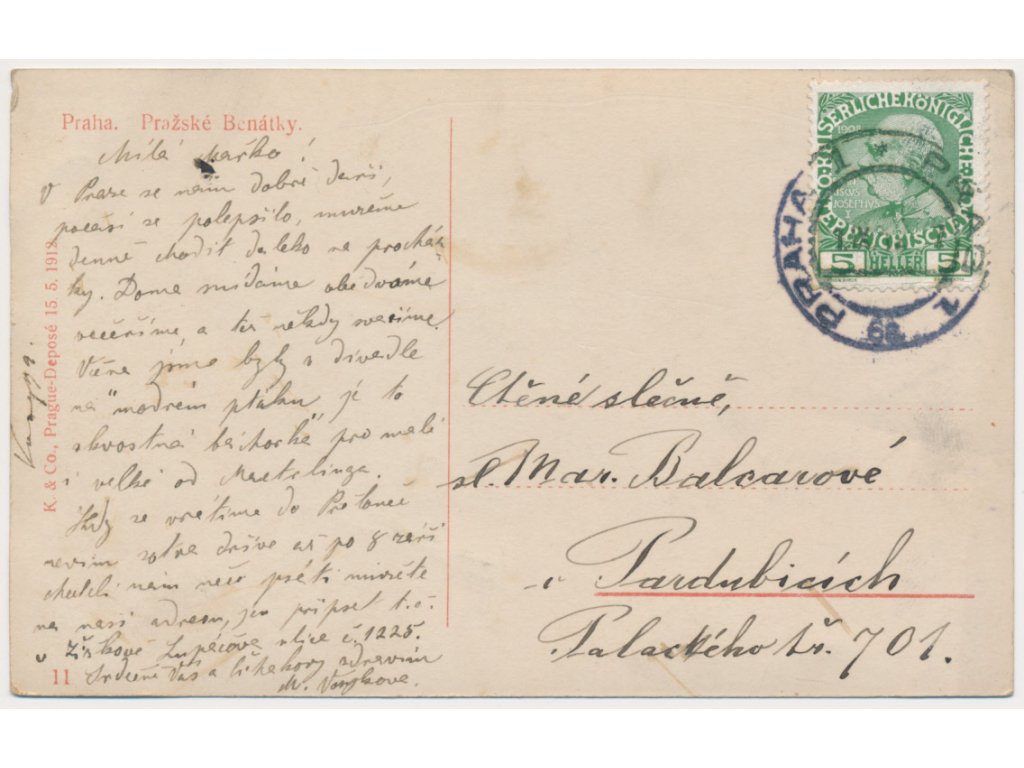 Praha. Pražské Benátky.
Milá Mařko!
V Praze se nám dobře daří,
počasí se polepšilo, můžeme
denně chodit daleko na procház-
ky. Doma snídáme obědváme
večeříme, a též někdy svačíme.
Včera jsme byly v divadle
na "modrém ptáku", je to
skvostná báchorka pro malé
i velké od Maeterlinga.
Kdy se vrátíme do
nevím sotva dříve až po 8 září
chcete-li nám něco psáti můžete
na naši adresu, jen připsat t.č.
v Žižkově Lupáčova ulice č. 1225.
Srdečně Vás a zdravím
M.
K. & Co., Prague-Deposé 15 5. 1912
11
Ctěné slečně,
sl. Mar. Balcarové
v Pardubicích
Palackého tř. 701.
KAISERLICHE KÖNIGLICHE
1908
JOSEPHUS
I
ÖSTERREICHISCHE
5 HELLER 5
PRAHA 1 * PRAG 1
6a